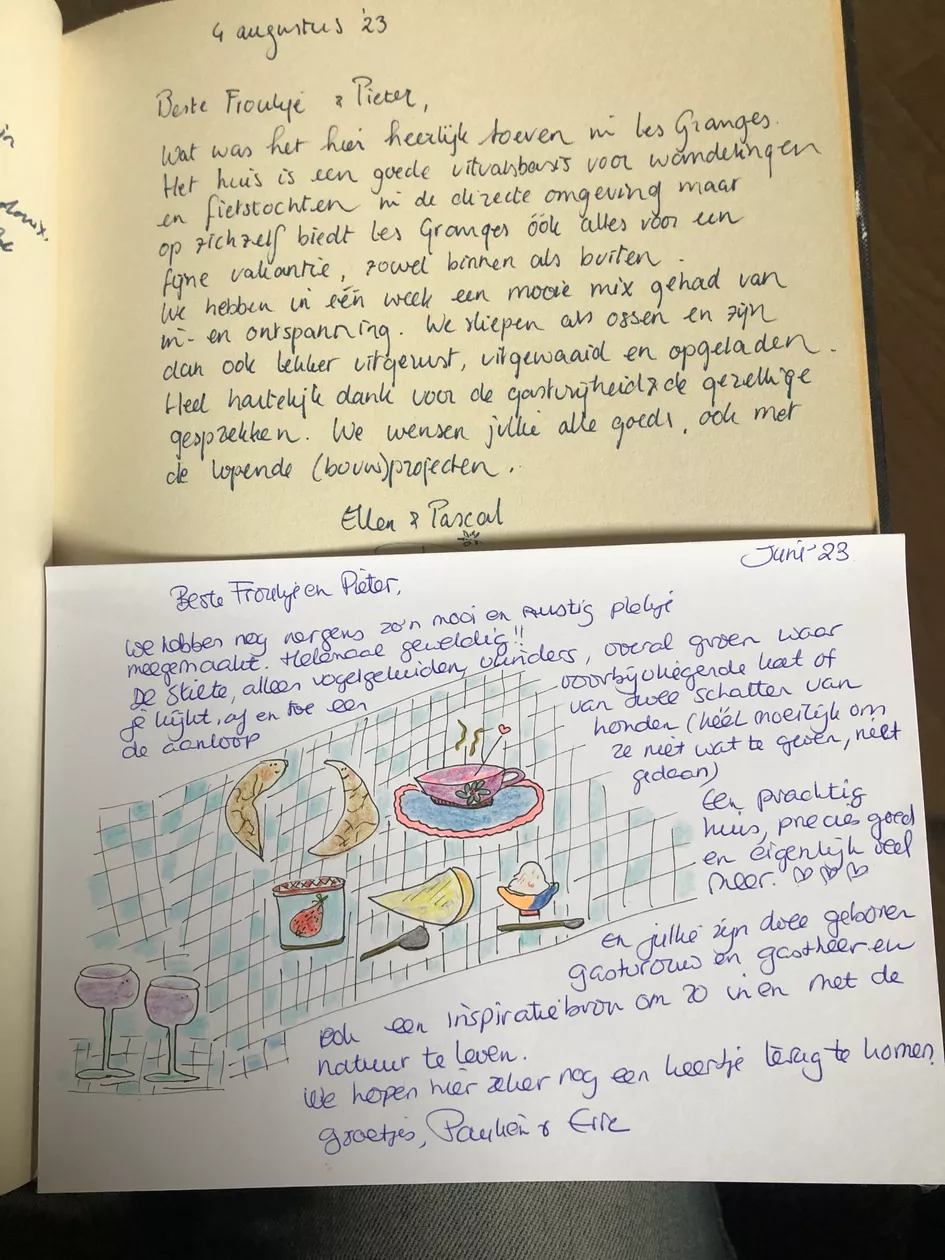 4 augustus '23
Beste Froukje & Pieter,
Wat was het hier heerlijk toeven in les Granges.
Het huis is een goede uitvalsbasis voor wandelingen
en fietstochten in de directe omgeving maar
op zichzelf biedt les Granges óók alles voor een
fijne vakantie, zowel binnen als buiten.
We hebben in één week een mooie mix gehad van
in- en ontspanning. We sliepen als ossen en zijn
dan ook lekker uitgerust, uitgewaaid en opgeladen.
Heel hartelijk dank voor de gastvrijheid & de gezellige
gesprekken. We wensen jullie alle goeds, ook met
de lopende (bouw)projecten.
Ellen & Pascal
Juni '23
Beste Froukje en Pieter,
We hebben nog nergens zo'n mooi en rustig plekje
meegemaakt. Helemaal geweldig!!
De stilte, alleen vogelgeluiden, vlinders, overal groen waar
je kijkt, af en toe een voorbijvliegende kat of
de aanloop van twee schatten van
honden (héél moeilijk om
ze niet wat te geven, niet
gedaan)
Een prachtig
huis, precies goed
en eigenlijk veel
meer. ♡♡♡
en jullie zijn twee geboren
gastvrouw en gastheer en
ook een inspiratiebron om zo in en met de
natuur te leven.
We hopen hier zeker nog een keertje terug te komen.
groetjes, Paulien & Eric